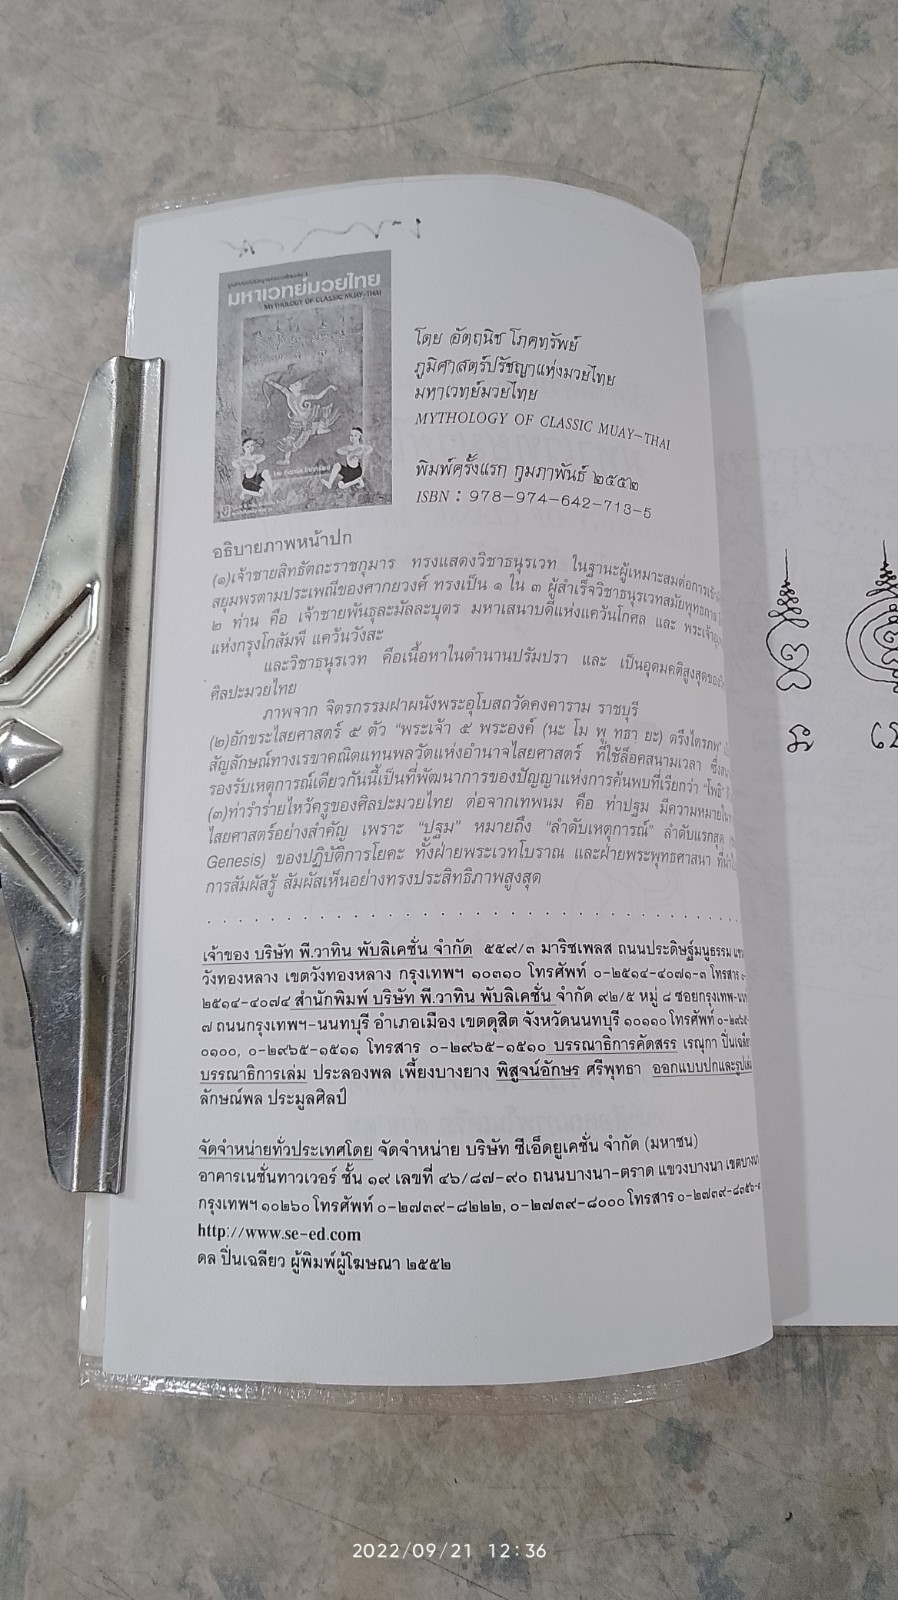 มหาเวทย์มวยไทย
MYTHOLOGY OF CLASSIC MUAY-THAI
โดย อัตถนิช โภคทรัพย์
ภูมิศาสตร์ปรัชญาแห่งมวยไทย
มหาเวทย์มวยไทย
MYTHOLOGY OF CLASSIC MUAY-THAI
พิมพ์ครั้งแรก กุมภาพันธ์ ๒๕๕๒
ISBN : 978-974-642-713-5
อธิบายภาพหน้าปก
(๑)เจ้าชายสิทธัตถะราชกุมาร ทรงแสดงวิชาธนุรเวท ในฐานะผู้เหมาะสมต่อการ
สยุมพรตามประเพณีของศากยวงศ์ ทรงเป็น ๑ ใน ๓ ผู้สำเร็จวิชาธนุรเวทสมัยพุทธกาล
๒ ท่าน คือ เจ้าชายพันธุละมัลละบุตร มหาเสนาบดีแห่งแคว้นโกศล และ
แห่งกรุงโกสัมพี แคว้นวังสะ
และวิชาธนุรเวท คือเนื้อหาในตำนานปรัมปรา และ เป็นอุดมคติสูงสุดของ
ศิลปะมวยไทย
ภาพจาก จิตรกรรมฝาผนังพระอุโบสถวัดคงคาราม ราชบุรี
(๒)อักขระไสยศาสตร์ ๕ ตัว "พระเจ้า ๕ พระองค์ (นะ โม พุ ทธา ยะ) ตรึงไตรภพ"
สัญลักษณ์ทางเรขาคณิตแทนพลวัตแห่งอำนาจไสยศาสตร์ ที่ใช้ล็อคสนามเวลา
รองรับเหตุการณ์เดียวกันนี้เป็นที่พัฒนาการของปัญญาแห่งการค้นพบที่เรียกว่า "โพธิ"
(๓)ท่ารำร่ายไหว้ครูของศิลปะมวยไทย ต่อจากเทพนม คือ ท่าปฐม มีความหมายใน
ไสยศาสตร์อย่างสำคัญ เพราะ "ปฐม" หมายถึง "ลำดับเหตุการณ์" ลำดับแรกสุด
Genesis) ของปฏิบัติการโยคะ ทั้งฝ่ายพระเวทโบราณ และฝ่ายพระพุทธศาสนา
การสัมผัสรู้ สัมผัสเห็นอย่างทรงประสิทธิภาพสูงสุด
เจ้าของ บริษัท พี.วาทิน พับลิเคชั่น จำกัด ๕๕๙/๓ มาริชเพลส ถนนประดิษฐ์มนูธรรม
วังทองหลาง เขตวังทองหลาง กรุงเทพฯ ๑๐๓๑๐ โทรศัพท์ ๐-๒๕๑๔-๔๐๗๑-๓ โทรสาร ๐-
๒๕๑๔-๔๐๗๔ สำนักพิมพ์ บริษัท พี.วาทิน พับลิเคชั่น จำกัด ๙๒/๕ หมู่ ๘ ซอยกรุงเทพ-นนท์
๗ ถนนกรุงเทพฯ-นนทบุรี อำเภอเมือง เขตดุสิต จังหวัดนนทบุรี ๑๐๑๑๐ โทรศัพท์ ๐-๒๙๖๕-
๐๑๐๐, ๐-๒๙๖๕-๑๕๑๑ โทรสาร ๐-๒๙๖๕-๑๕๑๐ บรรณาธิการคัดสรร เรณุกา ปิ่นเฉลียว
บรรณาธิการเล่ม ประลองพล เพี้ยงบางยาง พิสูจน์อักษร ศรีพุทธา ออกแบบปกและรูปเล่ม
ลักษณ์พล ประมูลศิลป์
จัดจำหน่ายทั่วประเทศโดย จัดจำหน่าย บริษัท ซีเอ็ดยูเคชั่น จำกัด (มหาชน)
อาคารเนชั่นทาวเวอร์ ชั้น ๑๙ เลขที่ ๔๖/๘๗-๙๐ ถนนบางนา-ตราด แขวงบางนา เขตบางนา
กรุงเทพฯ ๑๐๒๖๐ โทรศัพท์ ๐-๒๗๓๙-๘๒๒๒, ๐-๒๗๓๙-๘๐๐๐ โทรสาร ๐-๒๗๓๙-๘๓๕๖-๙
http://www.se-ed.com
ดล ปิ่นเฉลียว ผู้พิมพ์ผู้โฆษณา ๒๕๕๒
2022/09/21 12:36